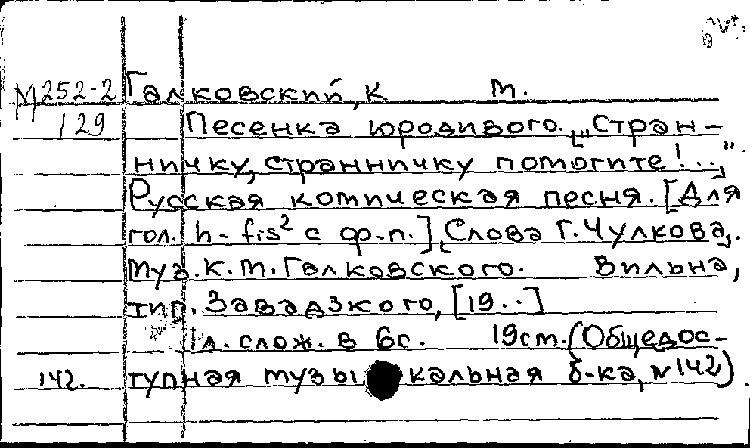 М252-2 Галковский, К М.
129 Песенка юродивого. „Стран-
ничку, странничку помогите!..",
Русская комическая песня. [Для
гол. h - fis² с ф-п.], Слова Г. Чулкова,
муз. К. М. Галковского. Вильна,
тип. Завадзкого, [19..]
1л. слож. в 6с. 19см. (Общедос-
142. тупная музыкальная б-ка, №142).